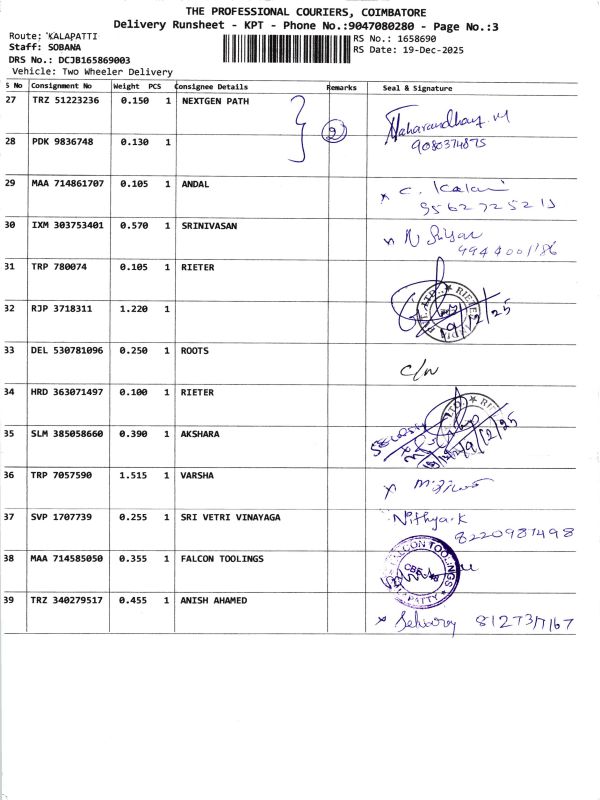 THE PROFESSIONAL COURIERS, COIMBATORE
Delivery Runsheet - KPT - Phone No.:9047080280 - Page No.:3
Route: KALAPATTI RS No.: 1658690
Staff: SOBANA RS Date: 19-Dec-2025
DRS No.: DCJB165869003
Vehicle: Two Wheeler Delivery
S No Consignment No Weight PCS Consignee Details Remarks Seal & Signature
27 TRZ 51223236 0.150 1 NEXTGEN PATH
2
28 PDK 9836748 0.130 1 9080374875
29 MAA 714861707 0.105 1 ANDAL x C. Kalai
9562725213
30 IXM 303753401 0.570 1 SRINIVASAN
9944001186
31 TRP 780074 0.105 1 RIETER
32 RJP 3718311 1.220 1 19/12/25
33 DEL 530781096 0.250 1 ROOTS
c/n
34 HRD 363071497 0.100 1 RIETER
35 SLM 385058660 0.390 1 AKSHARA 19/12/25
36 TRP 7057590 1.515 1 VARSHA
37 SVP 1707739 0.255 1 SRI VETRI VINAYAGA Nithya.K
8220981498
38 MAA 714585050 0.355 1 FALCON TOOLINGS FALCON TOOLINGS
39 TRZ 340279517 0.455 1 ANISH AHAMED